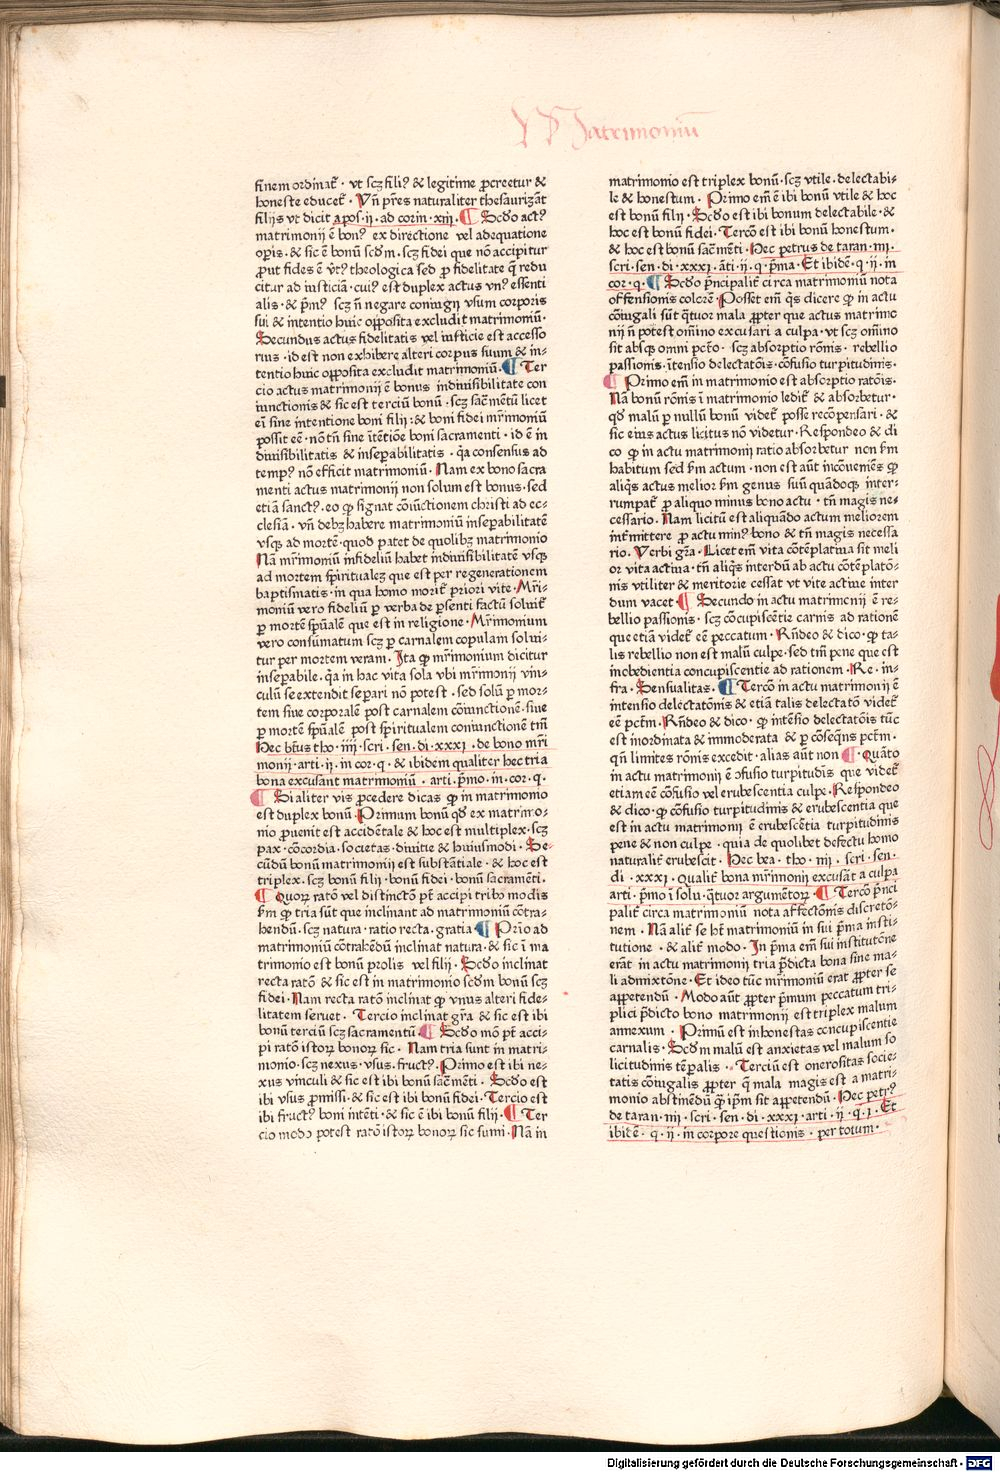 Matrimoniū
finem ordinat̄ · vt scꝫ filiꝰ & legitime ꝓcreetur &
honeste educet̄ · Vn̄ pr̄es naturaliter thesaurizāt
filijs vt dicit apos · ij · ad corin · xij · ¶ Scd̓o actꝰ
matrimonij ē bonꝰ ex directione vel adequatione
opis · & sic ē bonū scd̓m · scꝫ fidei que nō accipitur
ꝓut fides ē theologica sed ꝓ fidelitate q̄ redu
citur ad iusticiā · cuiꝰ est duplex actus vnꝰ essenti
alis · & p̄mꝰ scꝫ n̄ negare coniugij vsum corporis
sui & intentio huic opposita excludit matrimoniū ·
Secundus actus fidelitatis vel iusticie est accesso
rius · id est non exhibere alteri corpus suum & in-
tentio huic opposita excludit matrimoniū · ¶ Ter
cio actus matrimonij ē bonus indiuisibilitate con
iunctionis & sic est terciū bonū · scꝫ sac̄mētū licet
eī sine intentione boni filij : & boni fidei mr̄imoniū
possit eē · nō tn̄ sine ītētiōe boni sacramenti · id ē in
diuisibilitatis & inseꝑabilitatis · q̄a consensus ad
tempꝰ nō efficit matrimoniū · Nam ex bono sacra
menti actus matrimonij non solum est bonus · sed
etiā sanctꝰ · eo ꝙ signat cōiūctionem christi ad ec-
clesiā · vn̄ debꝫ habere matrimoniū inseꝑabilitatē
vsqꝫ ad mortē · quod patet de quolibꝫ matrimonio
Nā mr̄imoniū infideliū habet indiuisibilitatē vsqꝫ
ad mortem spiritualeꝫ que est per regenerationem
baptismatis · in qua homo morit̄ priori vite · Mr̄i-
moniū vero fideliū ꝑ verba de p̄senti factū soluit̄
ꝑ mortē spūalē que est in religione · Mr̄imonium
vero consūmatum scꝫ ꝑ carnalem copulam solui-
tur per mortem veram · Ita ꝙ mr̄imonium dicitur
inseꝑabile · q̄a in hac vita sola vbi mr̄imonij vin-
culū se extendit seꝑari nō potest · sed solū ꝑ mor-
tem siue corporalē post carnalem cōiunctionē · siue
ꝑ mortē spūalē post spiritualem coniunctionē tm̄
Hec bt̄us tho · iiij · scri · sen · di · xxxi · de bono mr̄i
monij · arti · ij · in cor · q · & ibidem qualiter hec tria
bona excusant matrimoniū · arti · p̄mo · in · cor · q ·
¶ Si aliter vis ꝓcedere dicas ꝙ in matrimonio
est duplex bonū · Primum bonū qd̓ ex matrimo-
nio ꝓuenit est accidētale & hoc est multiplex · scꝫ
pax · cōcordia · societas · diuitie & huiusmodi · Se-
cūdū bonū matrimonij est substātiale · & hoc est
triplex · scꝫ bonū filij · bonū fidei · bonū sacramēti ·
¶ Quoꝝ ratō vel distinctō pt̄ accipi tribꝰ modis
ẜm ꝙ tria sūt que inclinant ad matrimoniū cōtra-
hendū · scꝫ natura · ratio recta · gratia ¶ Prīo ad
matrimoniū cōtrahēdū inclinat natura · & sic ī ma
trimonio est bonū prolis vel filij · Scd̓o inclinat
recta ratō & sic est in matrimonio scd̓m bonū scꝫ
fidei · Nam recta ratō inclinat ꝙ vnus alteri fide-
litatem seruet · Tercio inclinat gr̄a & sic est ibi
bonū terciū scꝫ sacramentū · ¶ Scd̓o mō pt̄ acci-
pi ratō istoꝝ bonoꝝ sic · Nam tria sunt in matri-
monio · scꝫ nexus · vsus · fructꝰ · Primo est ibi ne-
xus vinculi & sic est ibi bonū sac̄mēti · Scd̓o est
ibi vsus ꝓmissi · & sic est ibi bonū fidei · Tercio est
ibi fructꝰ boni intēti · & sic ē ibi bonū filij · ¶ Ter
cio modo potest ratō istoꝝ bonoꝝ sic sumi · Nā in
matrimonio est triplex bonū · scꝫ vtile · delectabi-
le & honestum · Primo em̄ ē ibi bonū vtile & hoc
est bonū filij · Scd̓o est ibi bonum delectabile · &
hoc est bonū fidei · Tercō est ibi bonū honestum ·
& hoc est bonū sac̄mēti · Hec petrus de taran · iiij ·
scri · sen · di · xxxi · āti · ij · q · p̄ma · Et ibidē · q · ij · in
cor · q · ¶ Scd̓o p̄ncipalit̄ circa matrimoniū nota
offensionis colorē · Posset em̄ q̄s dicere ꝙ in actu
cōiugali sūt q̄tuor mala ꝓpter que actus matrimo
nij n̄ potest om̄ino excusari a culpa · vt scꝫ om̄ino
sit absqꝫ omni pct̄o · scꝫ absorptio rōnis · rebellio
passionis · ītensio delectatōis · cōfusio turpitudinis ·
¶ Primo em̄ in matrimonio est absorptio ratōis ·
Nā bonū rōnis ī matrimonio ledit̄ & absorbetur ·
qd̓ malū ꝑ nullū bonū videt̄ posse recōpensari · &
sic eius actus licitus nō videtur · Respondeo & di
co ꝙ in actu matrimonij ratio absorbetur non ẜm
habitum sed ẜm actum · non est aūt incōueniēs ꝙ
aliq̄s actus melior ẜm genus suū quādoqꝫ inter-
rumpat̄ ꝑ aliquo minus bono actu · tn̄ magis ne-
cessario · Nam licitū est aliquādo actum meliorem
int̄mittere ꝓ actu minꝰ bono & tn̄ magis necessa
rio · Verbi gr̄a · Licet em̄ vita cōtēplatiua sit meli
or vita actiua · tn̄ aliq̄s interdū ab actu cōtēplatō-
nis vtiliter & meritorie cessat vt vite actiue inter
dum vacet ¶ Secundo in actu matrimonij ē re-
bellio passionis · scꝫ cōcupiscētie carnis ad rationē
que etiā videt̄ eē peccatum · Rn̄deo & dico · ꝙ ta-
lis rebellio non est malū culpe · sed tm̄ pene que est
inobedientia concupiscentie ad rationem · Re · in-
fra · Sensualitas · ¶ Tercō in actu matrimonij ē
intensio delectatōnis & etiā talis delectatō videt̄
eē pct̄m · Rn̄deo & dico · ꝙ intēsio delectatōis tūc
est inordinata & immoderata & ꝑ cōseq̄ns pct̄m ·
qn̄ limites rōnis excedit · alias aūt non ¶ · Quāto
in actu matrimonij ē ɔfusio turpitudīs que videt̄
etiam eē cōfusio vel erubescentia culpe · Respondeo
& dico · ꝙ cōfusio turpitudinis & erubescentia que
est in actu matrimonij ē erubescētia turpitudinis
pene & non culpe · quia de quolibet defectu homo
naturalit̄ erubescit · Hec bea · tho · iiij · scri · sen ·
di · xxxi · qualit̄ bona mr̄imonij excusāt a culpa
arti · p̄mo ī solu · q̄tuor argumētoꝝ ¶ Tercō p̄nci
palit̄ circa matrimoniū nota affectōnis discretō-
nem · Nā alit̄ se hꝫt matrimoniū in sui p̄ma insti-
tutione · & alit̄ modo · In p̄ma em̄ sui institutōne
erāt in actu matrimonij tria p̄dicta bona sine ma-
li admixtōne · Et ideo tūc mr̄imoniū erat ꝓpter se
appetendū · Modo aūt ꝓpter p̄mum peccatum tri-
plici p̄dicto bono matrimonij est triplex malum
annexum · Primū est inhonestas concupiscentie
carnalis · Scd̓m malū est anxietas vel malum so
licitudinis tēꝑalis · Terciū est onerositas socie-
tatis cōiugalis ꝓpter q̄ mala magis est a matri-
monio abstinēdū q̄ ip̄m sit appetendū · Hec petrꝰ
de taran · iiij · scri · sen · di · xxxi · arti · ij · q · i · Et
ibidē · q · ij · in corpore questionis · per totum ·
Digitalisierung gefördert durch die Deutsche Forschungsgemeinschaft · DFG